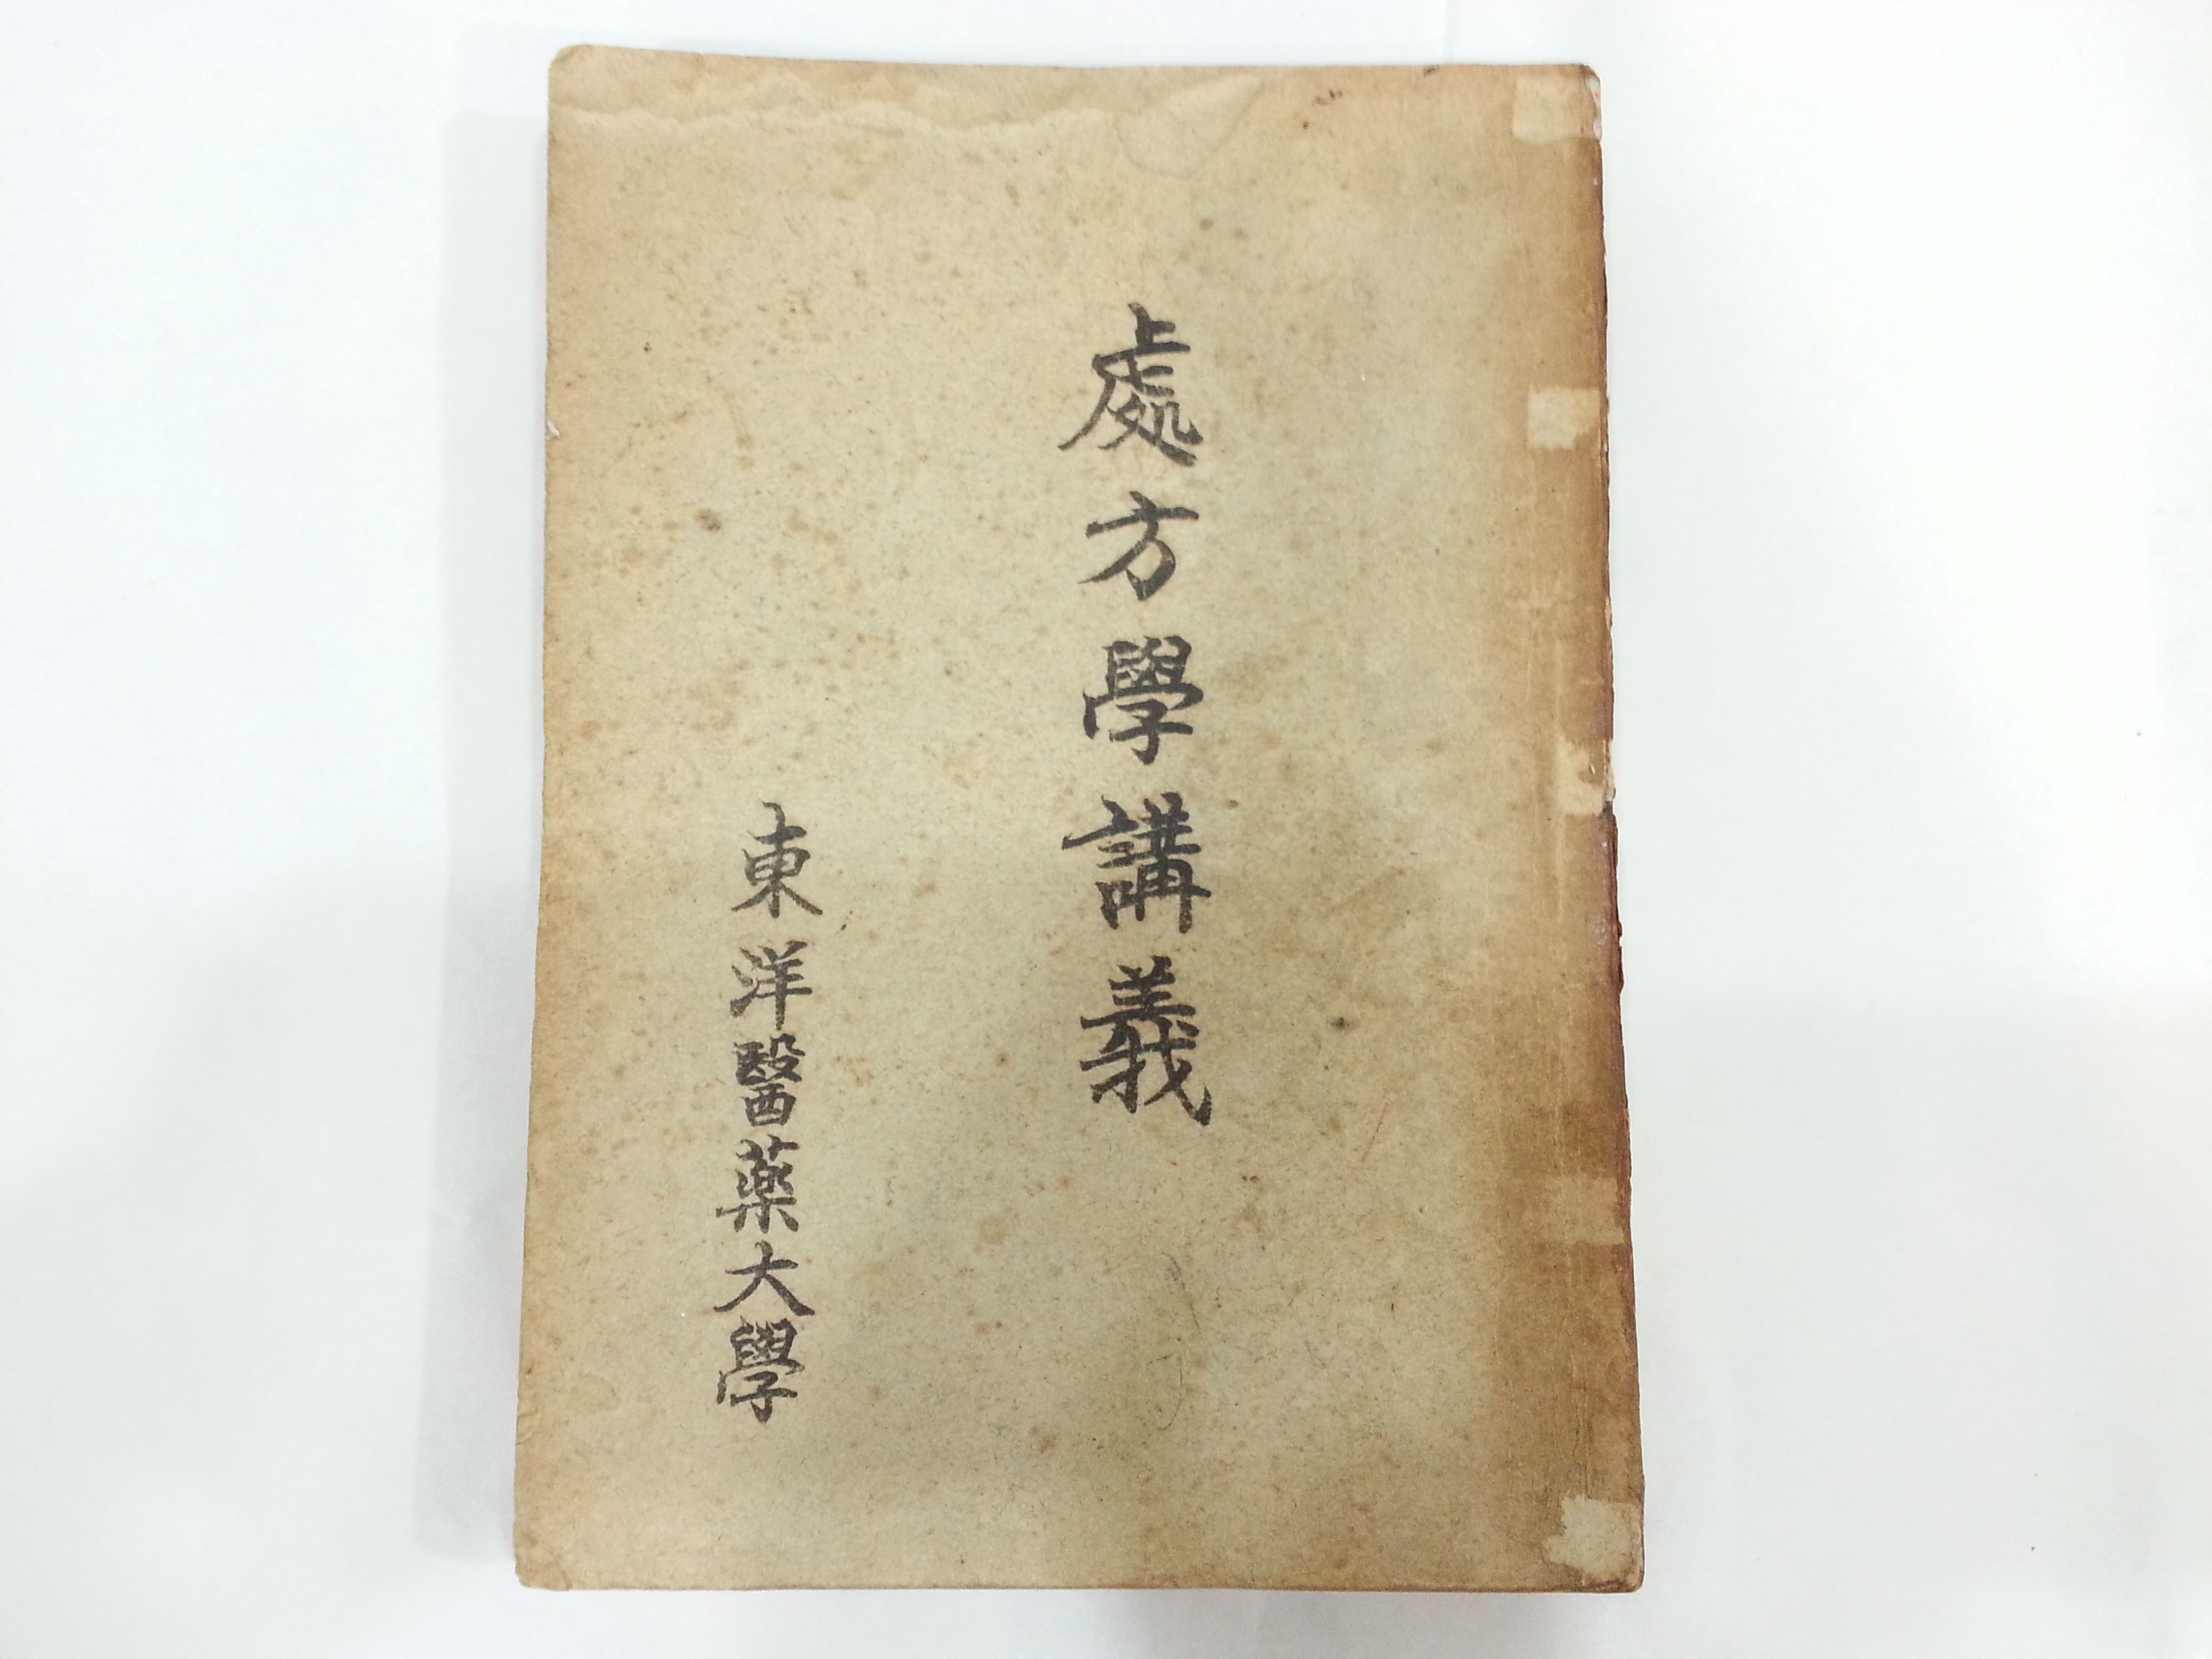 處方學講義
東洋醫藥大學